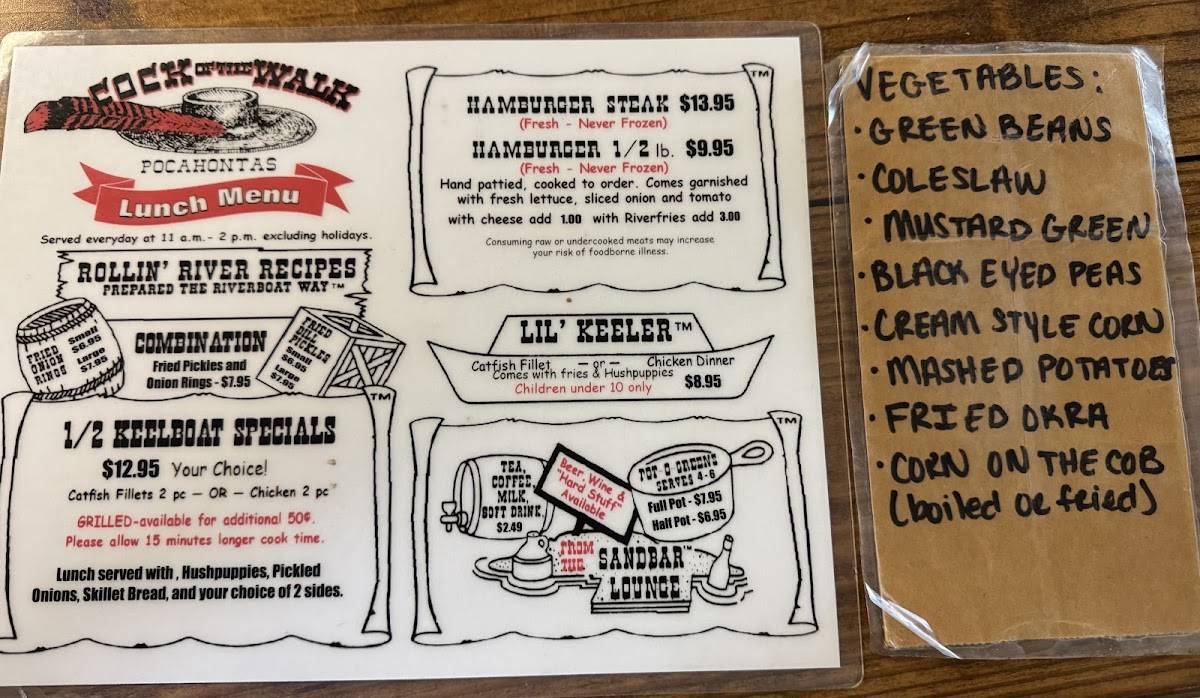 COCK OF THE WALK
POCAHONTAS
Lunch Menu
Served everyday at 11 a.m.- 2 p.m. excluding holidays.
ROLLIN' RIVER RECIPES
PREPARED THE RIVERBOAT WAY™
FRIED
ONION
RINGS
Small
$6.95
Large
$7.95
COMBINATION
Fried Pickles and
Onion Rings - $7.95
FRIED
DILL
PICKLES
Small
$6.95
Large
$7.95
TM
1/2 KEELBOAT SPECIALS
$12.95 Your Choice!
Catfish Fillets 2 pc — OR — Chicken 2 pc
GRILLED-available for additional 50¢.
Please allow 15 minutes longer cook time.
Lunch served with , Hushpuppies, Pickled
Onions, Skillet Bread, and your choice of 2 sides.
TM
HAMBURGER STEAK $13.95
(Fresh - Never Frozen)
HAMBURGER 1/2 lb. $9.95
(Fresh - Never Frozen)
Hand pattied, cooked to order. Comes garnished
with fresh lettuce, sliced onion and tomato
with cheese add 1.00 with Riverfries add 3.00
Consuming raw or undercooked meats may increase
your risk of foodborne illness.
LIL' KEELER™
Catfish Fillet — or — Chicken Dinner
Comes with fries & Hushpuppies $8.95
Children under 10 only
TM
TEA,
COFFEE,
MILK,
SOFT DRINK
$2.49
Beer, Wine &
"Hard Stuff"
Available
POT-O-GREENS
SERVES 4-6
Full Pot - $7.95
Half Pot - $6.95
FROM
THE
SANDBAR™
LOUNGE
VEGETABLES:
· GREEN BEANS
· COLESLAW
· MUSTARD GREEN
· BLACK EYED PEAS
· CREAM STYLE CORN
· MASHED POTATOES
· FRIED OKRA
· CORN ON THE COB
(boiled or fried)